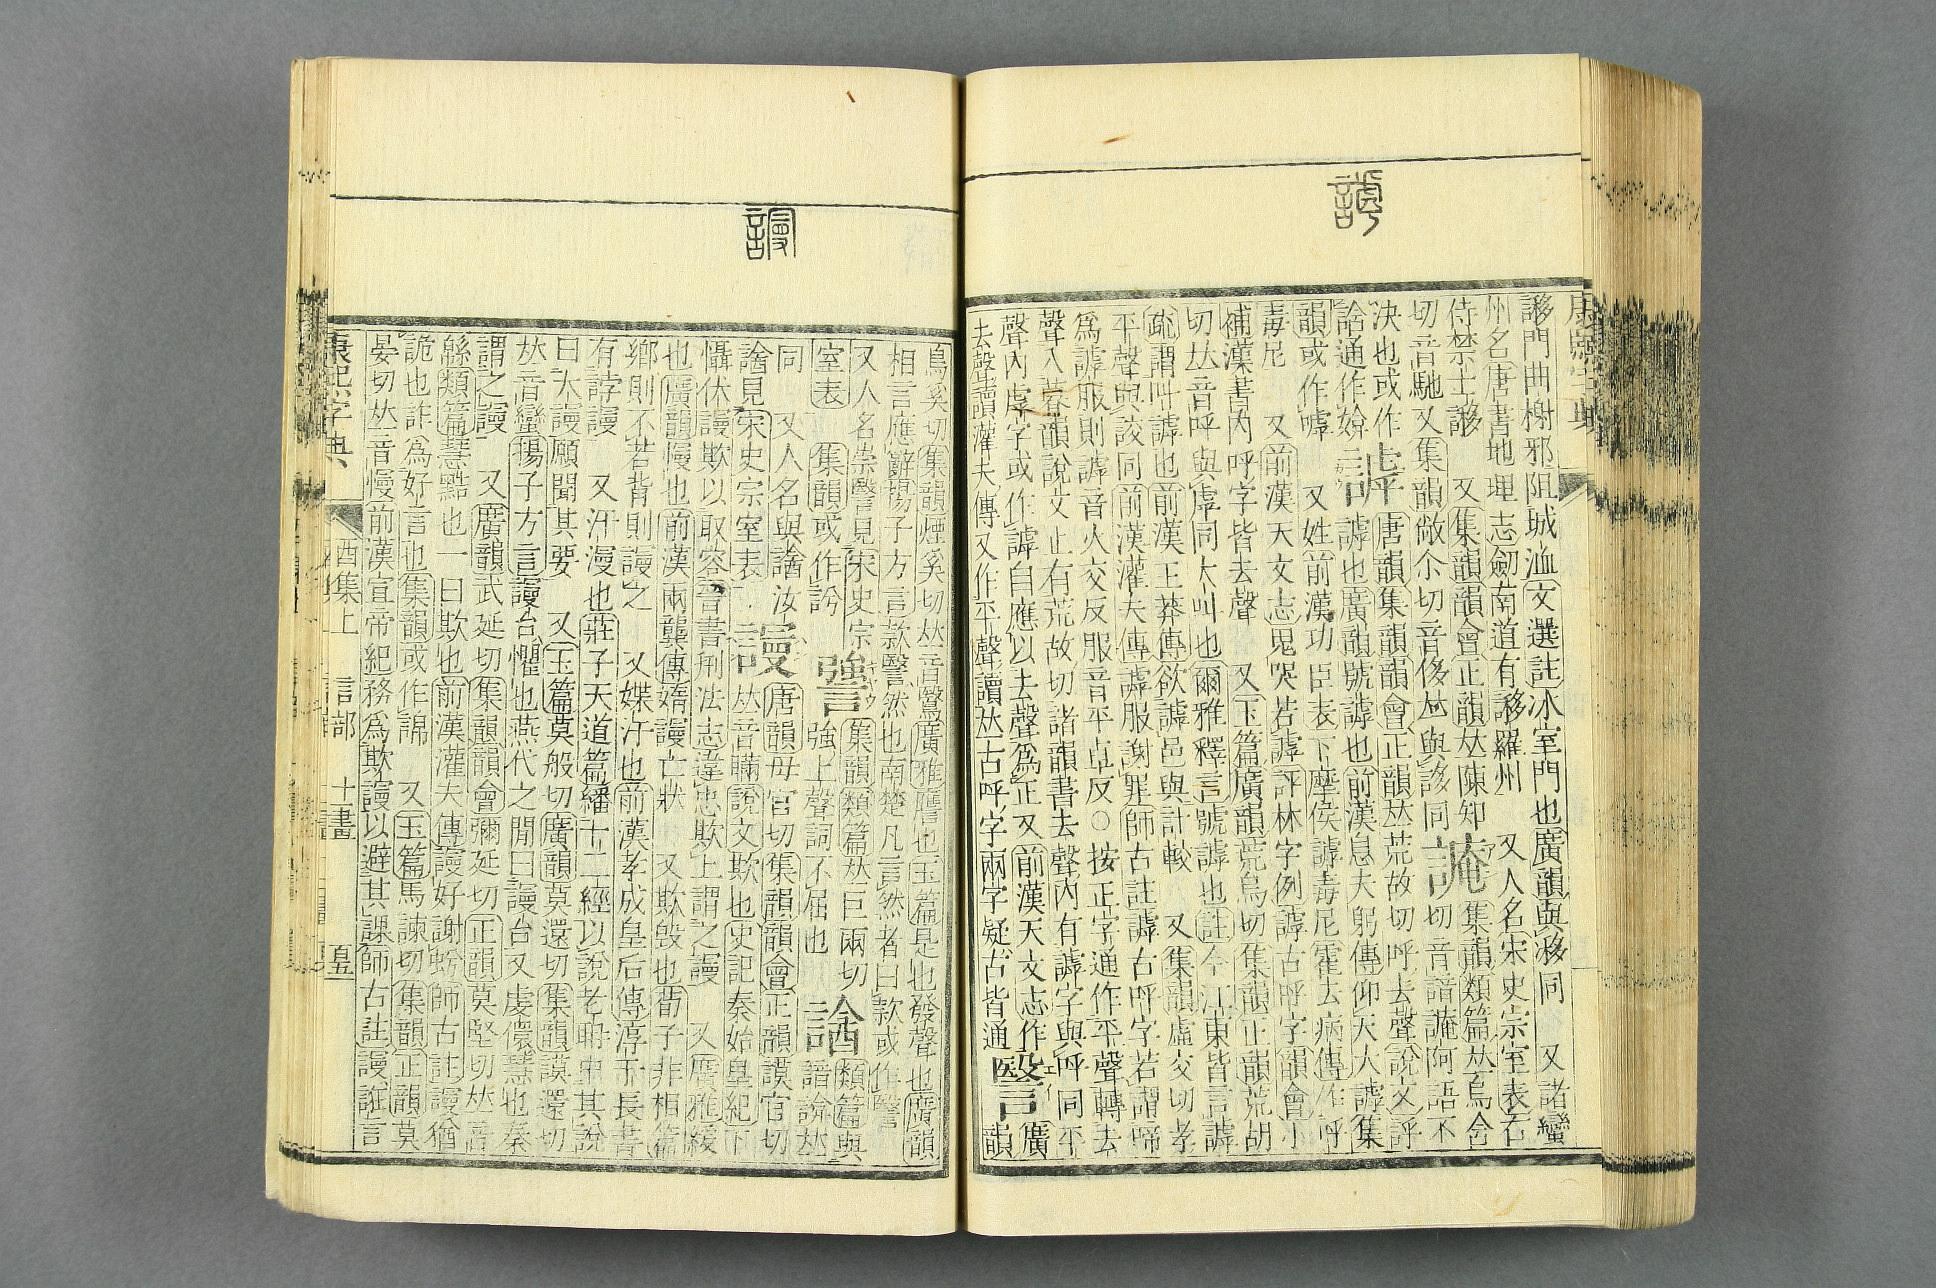 謼
謻門曲榭邪阻城洫文選註冰室門也廣韻與簃同 又諸蠻
州名唐書地理志劒南道有謻羅州 又人名宋史宗室表右
侍禁士謻 又集韻韻會正韻𠀤陳知
切音馳又集韻敞尒切音侈𠀤與誃同
䛳 集韻類篇𠀤烏含
切音諳䛳阿語不
決也或作
諂通作媕
謼 唐韻集韻韻會正韻𠀤荒故切呼去聲說文評
謼也廣韻號謼也前漢息夫躬傳仰天大謼集
韻或作嘑 又姓前漢功臣表下摩侯謼毒尼霍去病傳作呼
毒尼 又前漢天文志鬼哭若謼評林字例謼古呼字韻會小
補漢書內呼字皆去聲 又玉篇廣韻荒烏切集韻正韻荒胡
切𠀤音呼與虖同大叫也爾雅釋言號謼也註今江東皆言謼
疏謂叫謼也前漢王莽傳欲謼邑與計較 又集韻虛交切孝
平聲與詨同前漢灌夫傳謼服謝罪師古註謼古呼字若謂啼
爲謼服則謼音火交反服音平卓反○按正字通作平聲轉去
聲入暮韻說文止有荒故切諸韻書去聲內有謼字與呼同平
聲內虖字或作謼自應以去聲爲正又前漢天文志作
去聲讀灌夫傳又作平聲讀𠀤古呼字兩字疑古皆通
謾
謾
烏奚切集韻煙奚切𠀤音鷖廣雅譍也玉篇是也發聲也廣韻
相言應辭揚子方言欸䃜然也南楚凡言然者曰欸或作䃜
又人名崇䃜見宋史宗
室表
謽 集韻類篇𠀤巨兩切
強上聲詞不屈也
集韻或作䛨
同 又人名與䛳汝
䛳見宋史宗室表
謾 唐韻母官切集韻韻會正韻謨官切
𠀤音瞞說文欺也史記秦始皇紀下
懾伏謾欺以取容晉書刑法志違忠欺上謂之謾 又廣雅緩
也廣韻慢也前漢兩龔傳媠謾亡狀 又欺毀也荀子非相篇
鄉則不若背則謾之 又媟汙也前漢孝成皇后傳淳于長書
有誖謾 又汗漫也莊子天道篇繙十二經以說老聃中其說
曰大謾願聞其要 又玉篇莫般切廣韻莫還切集韻謨還切
𠀤音蠻揚子方言謾台懼也燕代之閒曰謾台又虔儇慧也秦
謂之謾 又廣韻武延切集韻韻會彌延切正韻莫堅切𠀤音
緜類篇慧黠也一曰欺也前漢灌夫傳謾好謝蚡師古註謾猶
詭也詐爲好言也集韻或作䛧 又玉篇馬諫切集韻正韻莫
晏切𠀤音慢前漢宣帝紀務爲欺謾以避其課師古註謾誑言
康熙字典 酉集上 言部 十畫